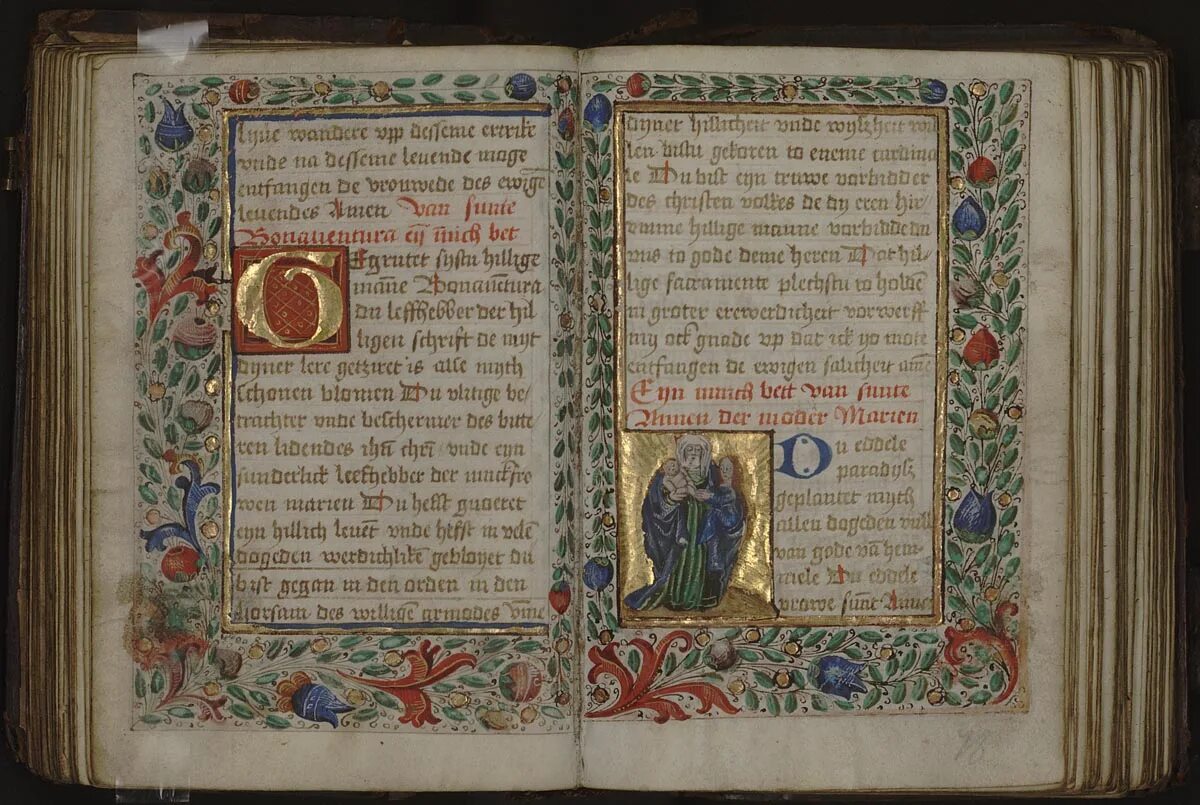 lyue wandere vpp desseme ertrike
vnde na desseme leuende moge
entfangen de vrouwede des ewigē
leuendes Amen Van sunte
Bonauentura eyn innich bet
Gegrutet systu hillige
manne Bonauētura
du leffhebber der hil
ligen schrift de myt
dyner lere getziret is alse myth
schonen blomen Du vlitige be/
trachter vnde beschermer des bitte
ren lidendes ihū chrī vnde eyn
sunderlick leefhebber der iunckfro
wen marien Du hefst guoeret
eyn hillich leuēt vnde hefst in velē
dogeden werdichlikē gebloyet du
bist gegan in den orden in den
horsam des willigē armodes vmme
dyner hillicheit vnde wyszheit
len bistu gekoren to eneme cardina
le Du bist eyn truwe vorbidder
des christen volkes de dy eren hir/
vmme hillige manne vorbidde du
vns to gode deme heren Dat hil/
lige sacramente plechstu to holdē
in groter ererwerdicheit vorwerff
my ock gnade vp dat ick yo mote
entfangen de ewigen salicheit amē
Eyn innich bett van sunte
Annen der moder Marien
Du eddele
paradysz
geplantet myth
allen dogeden vull
van gode vā hem-
mele Du eddele
vrowe sunt Anne